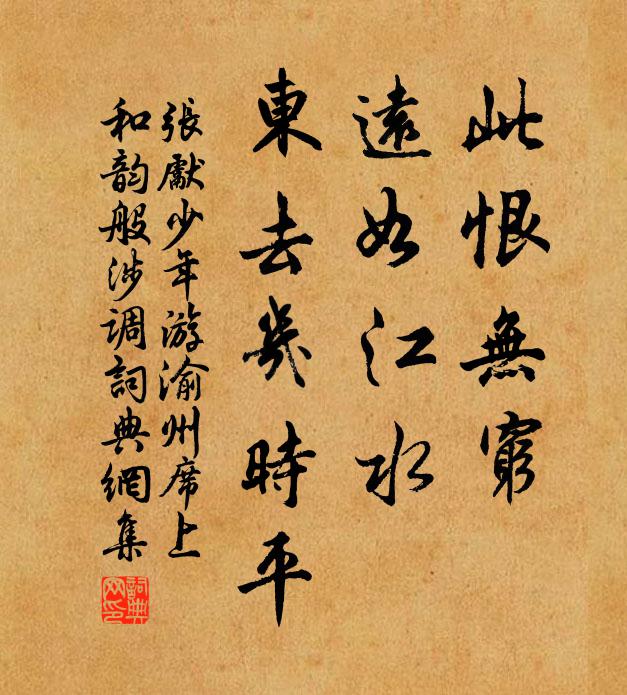 此恨無窮
遠如江水
東去幾時平
張獻少年游渝州席上
和韵般涉調詞典網集
詞典
网印